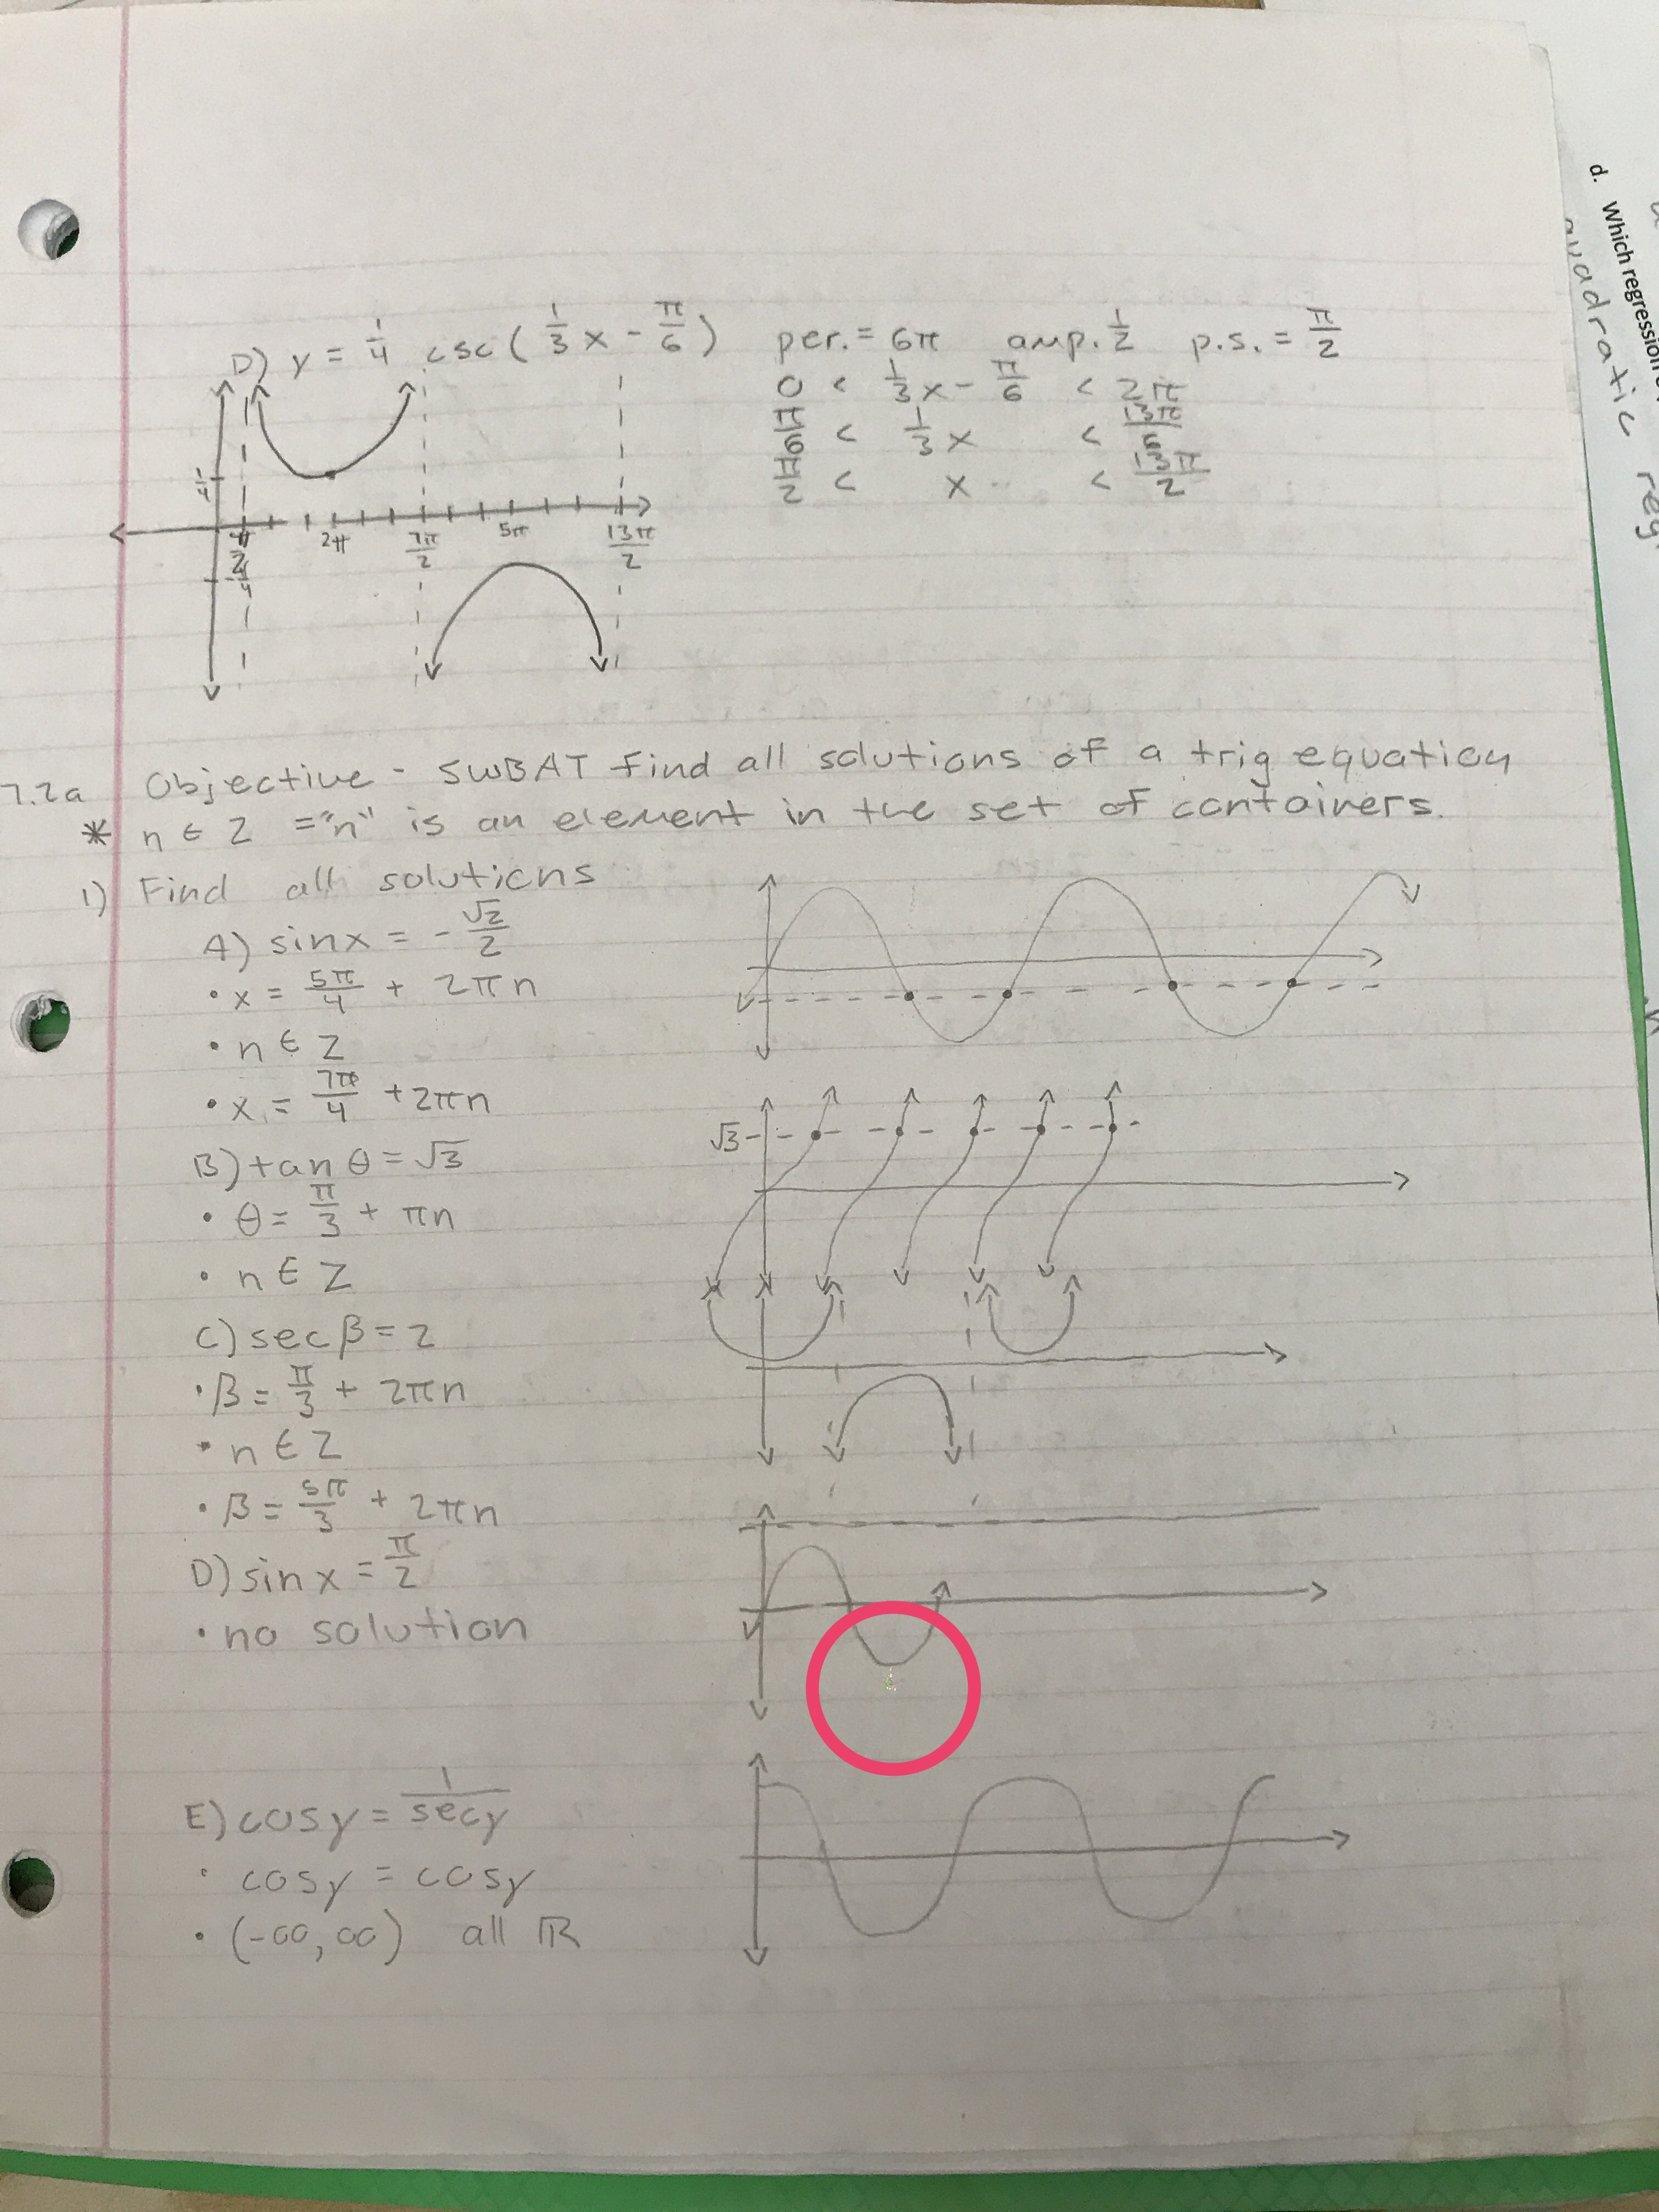 D) y = 1/4 csc(1/3 x - π/6) per. = 6π amp. 1/2 p.s. = π/2
0 < 1/3 x - π/6 < 2π
π/6 < 1/3 x < 13π/6
π/2 < x < 13π/2
1/4
π/2 2π 7π/2 5π 13π/2
-1/4
7.2a Objective - SWBAT find all solutions of a trig equation
* n ∈ Z = "n" is an element in the set of containers.
1) Find all solutions
A) sinx = -√2/2
• x = 5π/4 + 2πn
• n ∈ Z
• x = 7π/4 + 2πn
B) tan θ = √3
√3
• θ = π/3 + πn
• n ∈ Z
C) sec β = 2
• β = π/3 + 2πn
• n ∈ Z
• β = 5π/3 + 2πn
D) sin x = π/2
• no solution
E) cosy = 1/secy
• cosy = cosy
• (-∞, ∞) all ℝ
d. Which regression
quadratic reg